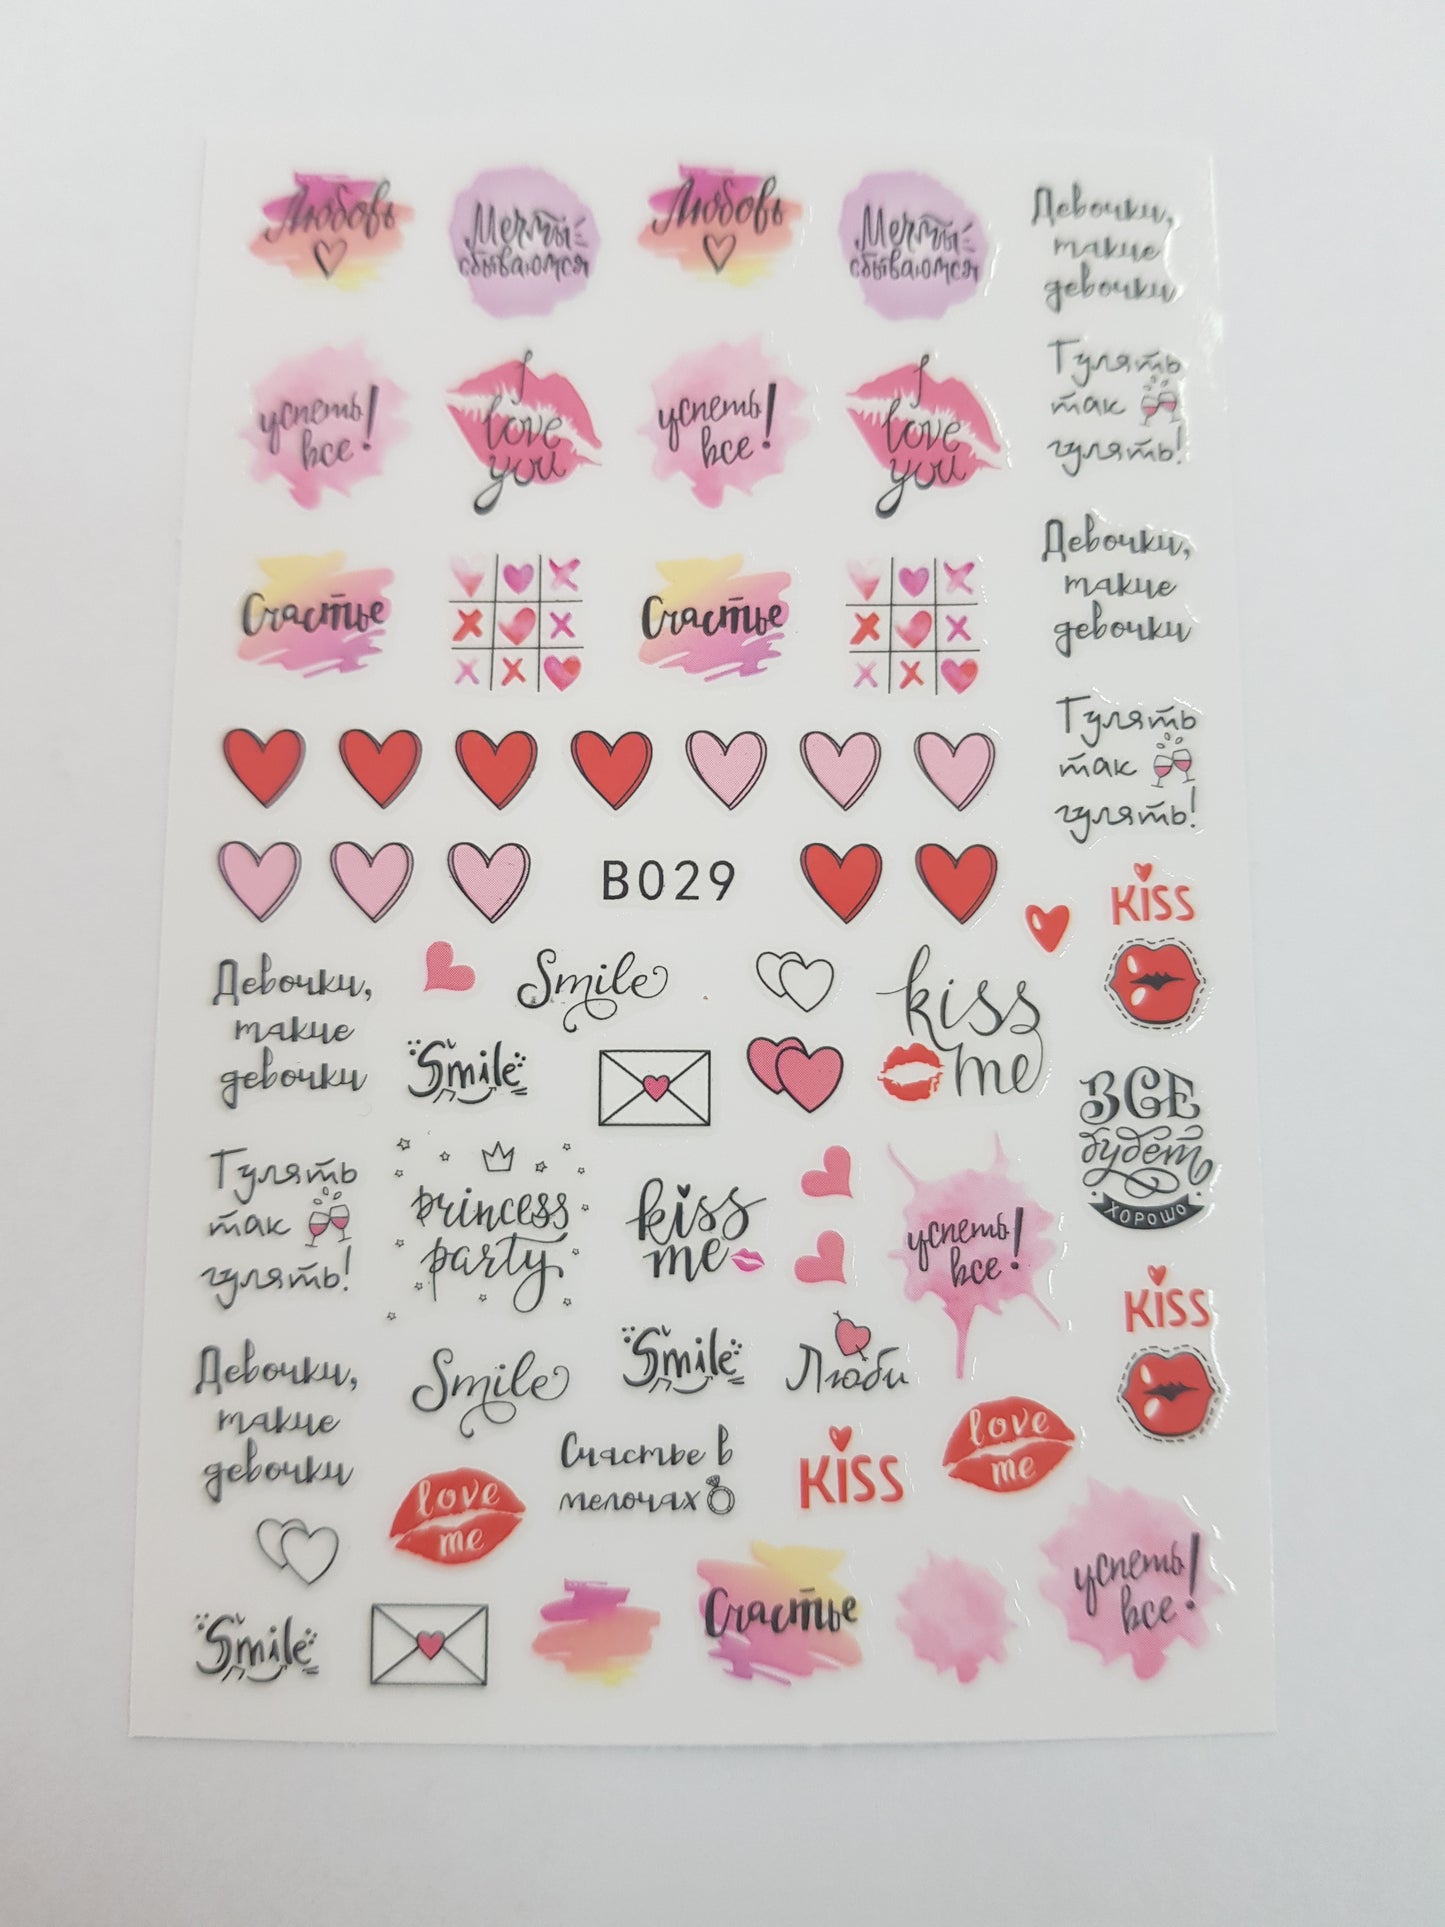 Любовь
Мечты
сбываются
Любовь
Мечты
сбываются
Девочки,
такие
девочки
успеть
все!
I
love
you
успеть
все!
I
love
you
Гулять
так
гулять!
Счастье
Счастье
Девочки,
такие
девочки
Гулять
так
гулять!
B029
KISS
Девочки,
такие
девочки
Smile
Smile
kiss
me
ВСЕ
будет
ХОРОШО
Гулять
так
гулять!
princess
party
kiss
me
успеть
все!
KISS
Девочки,
такие
девочки
Smile
Smile
Люби
love
me
Счастье в
мелочах
KISS
love
me
Smile
Счастье
успеть
все!